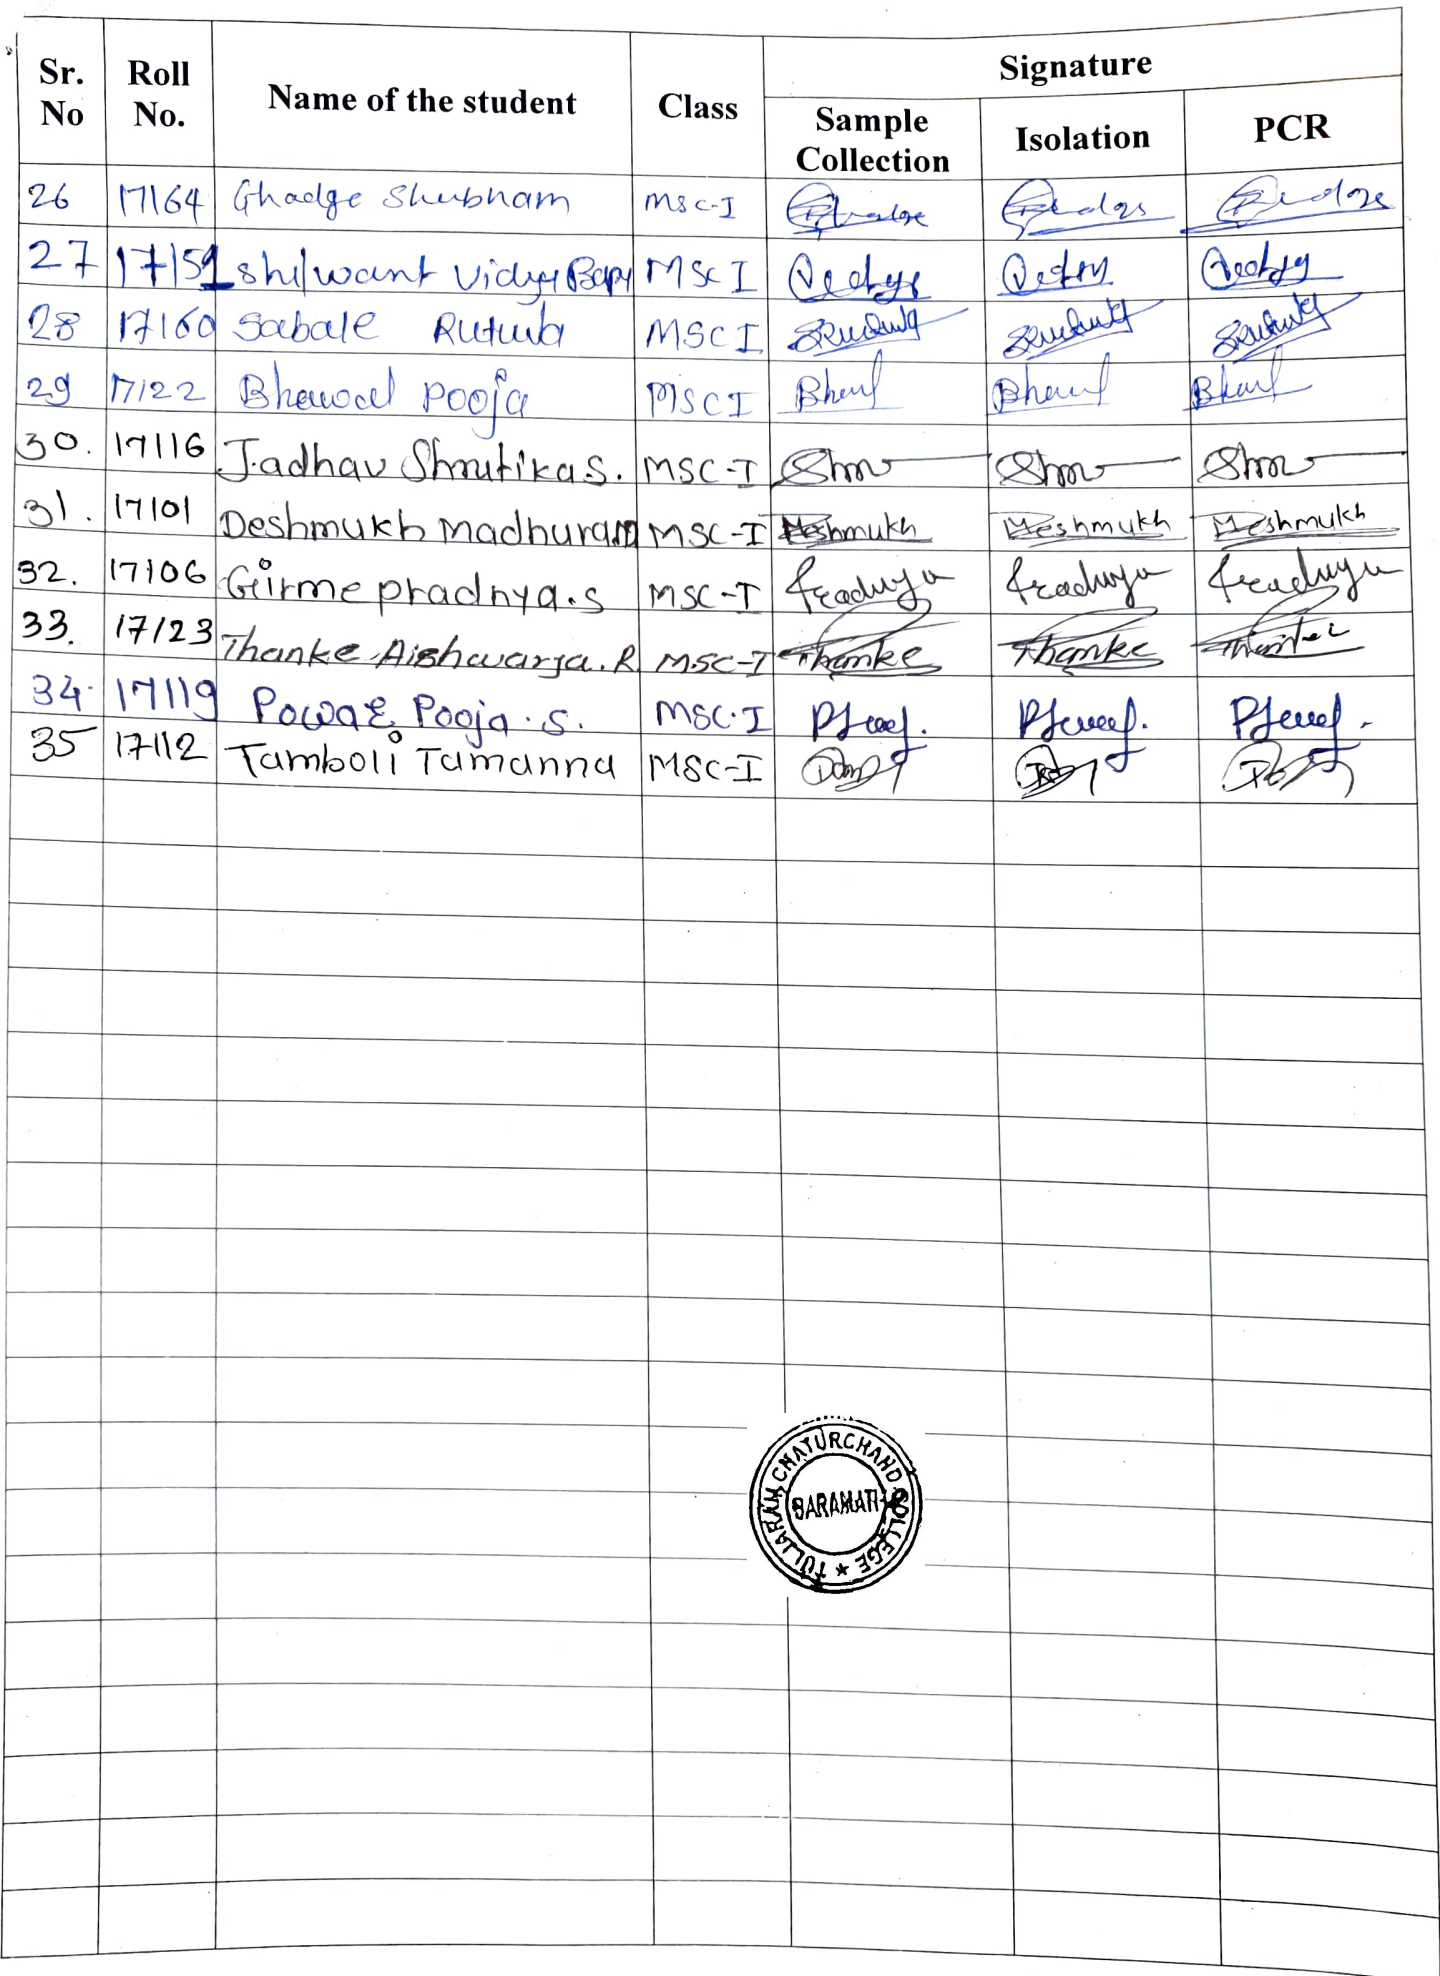 Signature
Sr. No Roll No. Name of the student Class Sample Collection Isolation PCR
26 17164 Ghadge Shubham MSC-I
27 17151 Shilwant Vidya Bapu MSC I
28 17160 Sabale Rutuja MSC I
29 17122 Bhawal Pooja MSC I
30. 17116 Jadhav Shrutika S. MSC-I
31. 17101 Deshmukh Madhura MSC-I Deshmukh Deshmukh Deshmukh
32. 17106 Girme pradnya.s MSC-I Pradnya Pradnya Pradnya
33. 17123 Thanke Aishwarya. R MSC-I Thanke Thanke Thanke
34. 17119 Pawar Pooja. S. MSC.I
35 17112 Tamboli Tamanna MSC-I
TULJARAM CHATURCHAND COLLEGE ★
BARAMATI